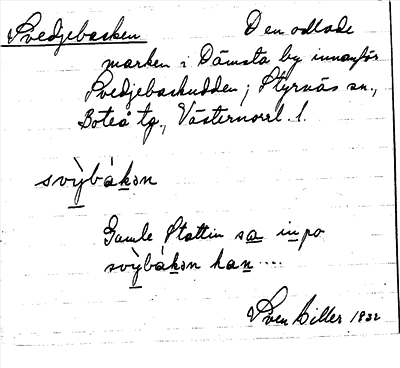 Svedjebacken Den odlade
marken i Dämsta by innanför
Svedjebackudden; Styrnäs sn.,
Boteå tg., Västernorrl. l.
svỳbákən
Gamle Stattin sa inpo
svỳbákən han ....
Sven Biller 1932